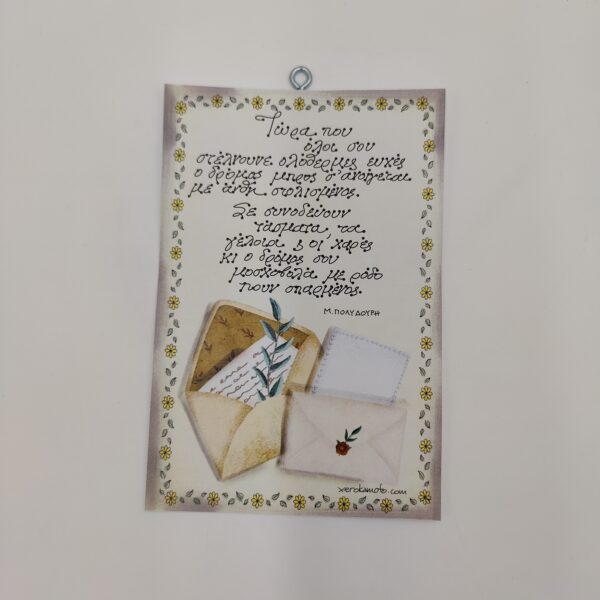 Τώρα που
όλοι σου
στέλνουνε ολόθερμες ευχές
ο δρόμος μπρος σ' ανοίγεται
με άνθη στολισμένος.
Σε συνοδεύουν
τ' άσματα, τα
γέλοια ς οι χαρές
κι ο δρόμος σου
μοσχοβολά με ρόδα
πουν σπαρμένος.
Μ. ΠΟΛΥΔΟΥΡΗ
xerokamoto.com